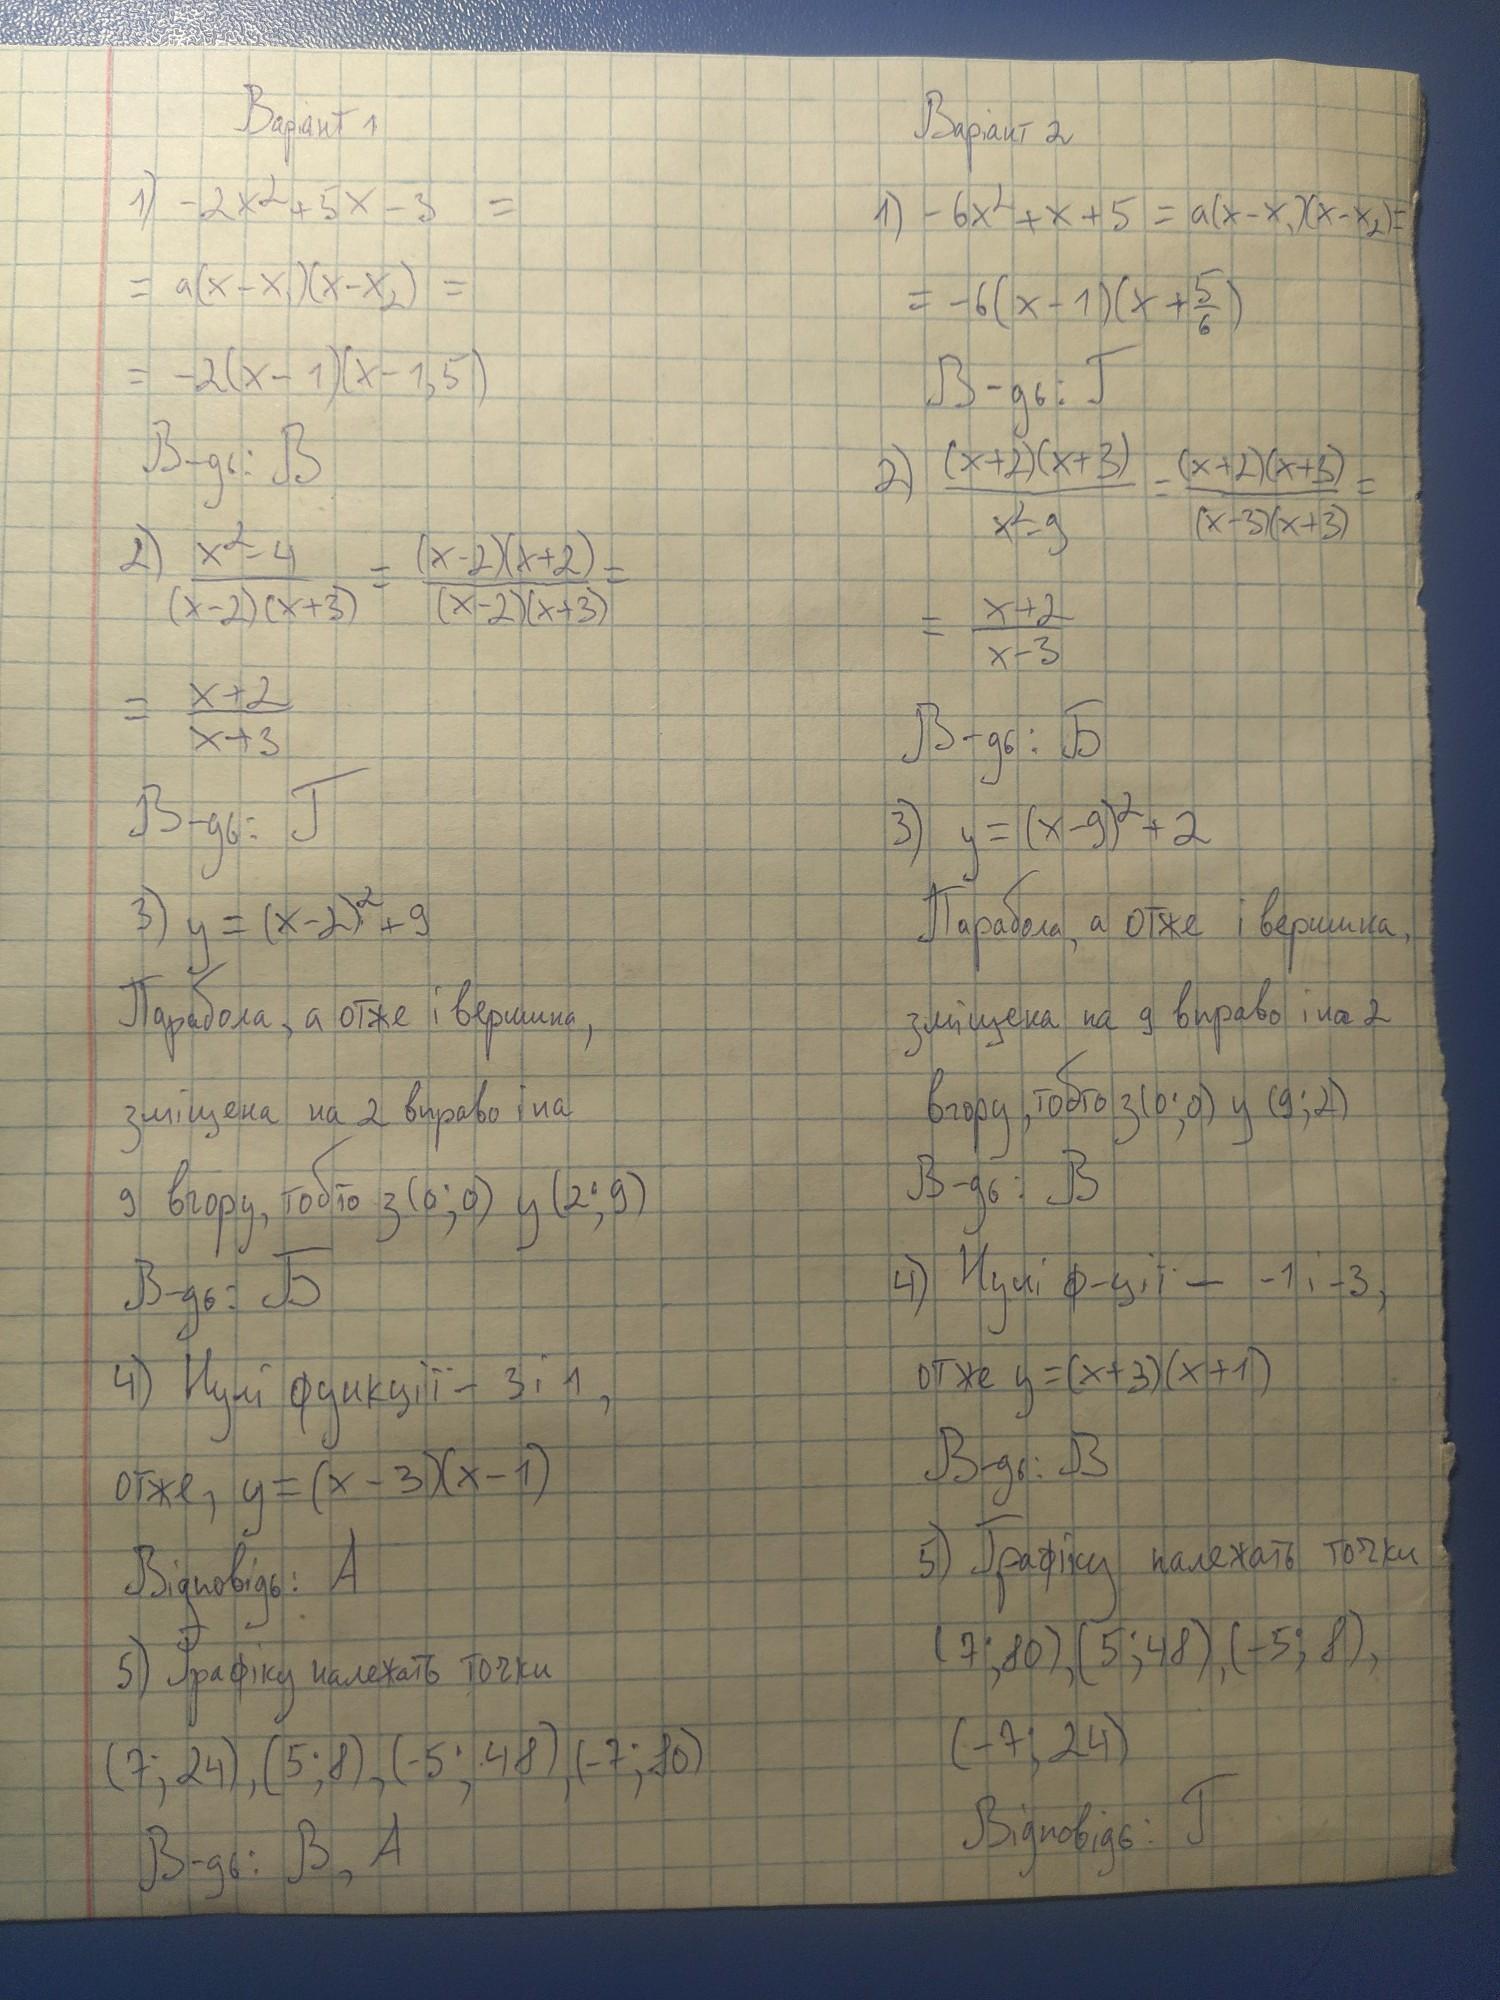 Варіант 1
1) -2x²+5x-3 =
= a(x-x₁)(x-x₂) =
= -2(x-1)(x-1,5)
В-дь: В
2) (x²-4)/((x-2)(x+3)) = ((x-2)(x+2))/((x-2)(x+3)) =
= (x+2)/(x+3)
В-дь: Г
3) y = (x-2)²+9
Парабола, а отже і вершина,
зміщена на 2 вправо і на
9 вгору, тобто з (0;0) у (2;9)
В-дь: Б
4) Нулі функції - 3 і 1,
отже, y = (x-3)(x-1)
Відповідь: А
5) Графіку належать точки
(7; 24), (5; 8), (-5; 48), (-7; 80)
В-дь: В, А
Варіант 2
1) -6x²+x+5 = a(x-x₁)(x-x₂) =
= -6(x-1)(x+5/6)
В-дь: Г
2) ((x+2)(x+3))/(x²-9) = ((x+2)(x+3))/((x-3)(x+3)) =
= (x+2)/(x-3)
В-дь: Б
3) y = (x-9)²+2
Парабола, а отже і вершина,
зміщена на 9 вправо і на 2
вгору, тобто з (0;0) у (9;2)
В-дь: В
4) Нулі ф-ції — -1 і -3,
отже y=(x+3)(x+1)
В-дь: В
5) Графіку належать точки
(7; 80), (5; 48), (-5; 8),
(-7; 24)
Відповідь: Г